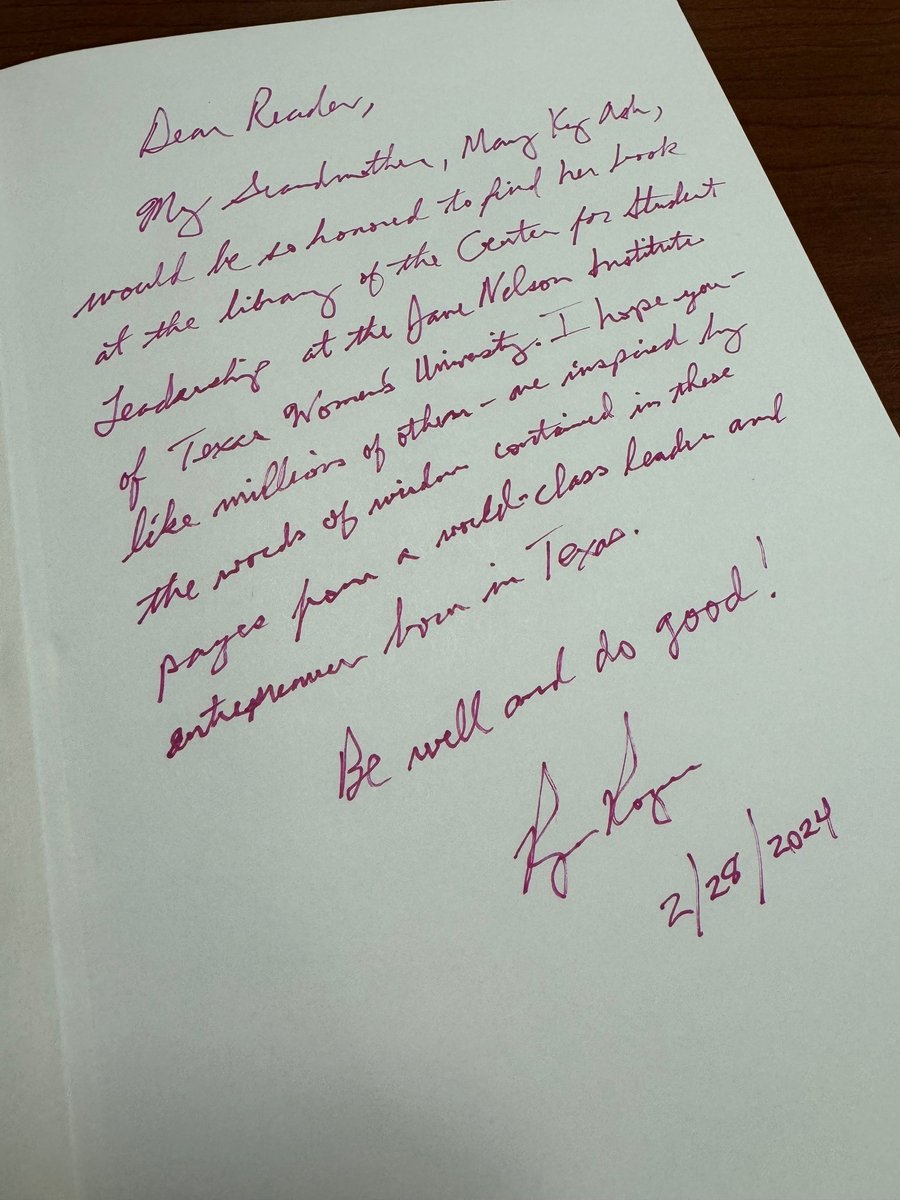 Dear Reader,
My Grandmother, Mary Kay Ash,
would be so honored to find her book
at the library of the Center for Student
Leadership at the Jane Nelson Institute
of Texas Women's University. I hope you-
like millions of others- are inspired by
the words of wisdom contained in these
pages from a world-class leader and
entrepreneur born in Texas.
Be well and do good!
Ryan Rogers
2/28/2024